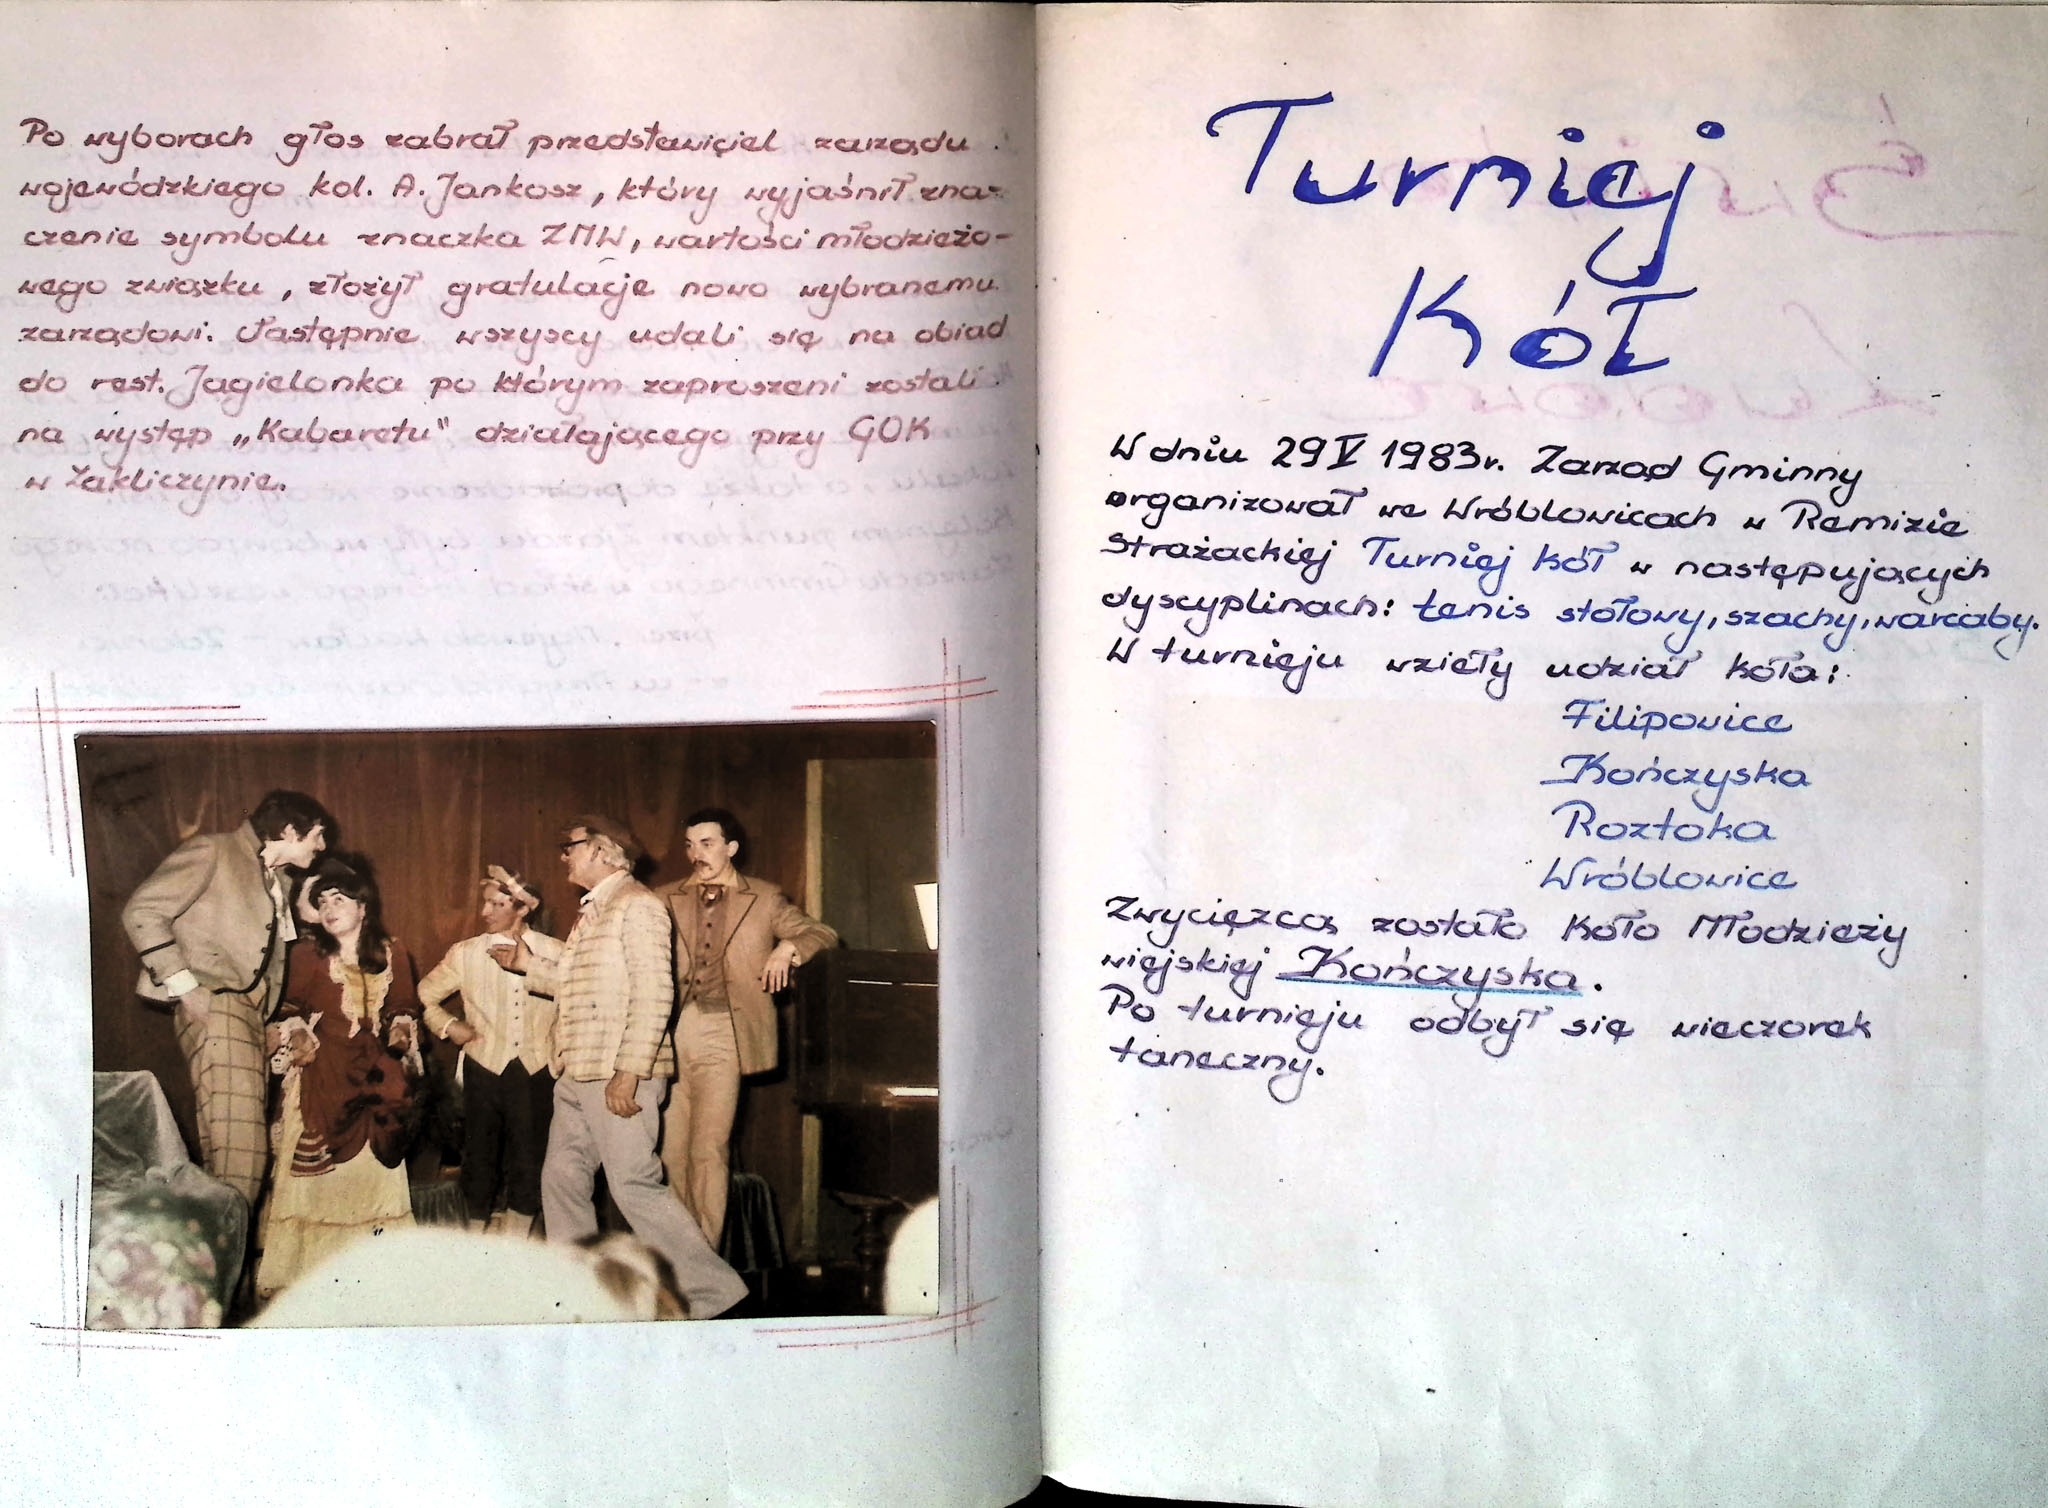 Po wyborach głos zabrał przedstawiciel zarządu
wojewódzkiego kol. A. Jankosz, który wyjaśnił zna-
czenie symbolu znaczka ZMW, wartości młodzieżo-
wego związku, złożył gratulacje nowo wybranemu
zarządowi. Następnie wszyscy udali się na obiad
do rest. Jagielonka po którym zaproszeni zostali
na występ „Kabaretu" działającego przy GOK
w Zakliczynie.
Turniej
Kół
W dniu 29 V 1983r. Zarząd Gminny
organizował we Wróblowicach w Remizie
Strażackiej Turniej Kół w następujących
dyscyplinach: tenis stołowy, szachy, warcaby.
W turnieju wzieły udział koła:
Filipowice
Kończyska
Roztoka
Wróblowice
Zwyciężcą zostało Koło Młodzieży
wiejskiej Kończyska.
Po turnieju odbył się wieczorek
taneczny.